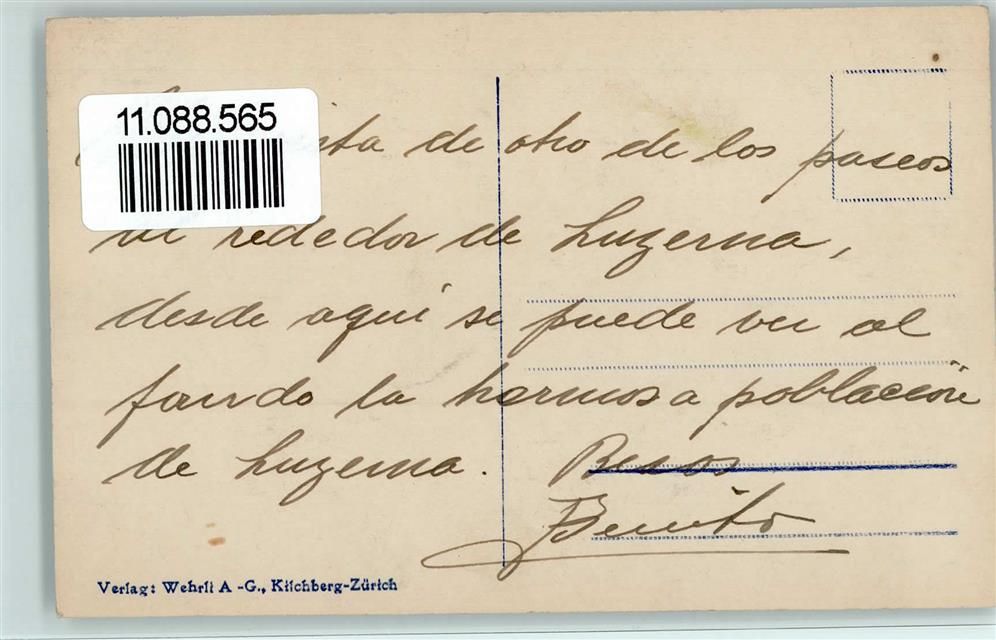 11.088.565
de otro de los paseos
rededor de Luzerna,
desde aqui se puede ver al
fondo la hermosa población
de Luzerna. Besos
Benito
Verlag: Wehrli A.-G., Kilchberg-Zürich